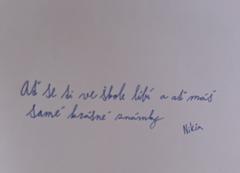 Ať se ti ve škole líbí a ať máš
samé krásné známky
Nikča